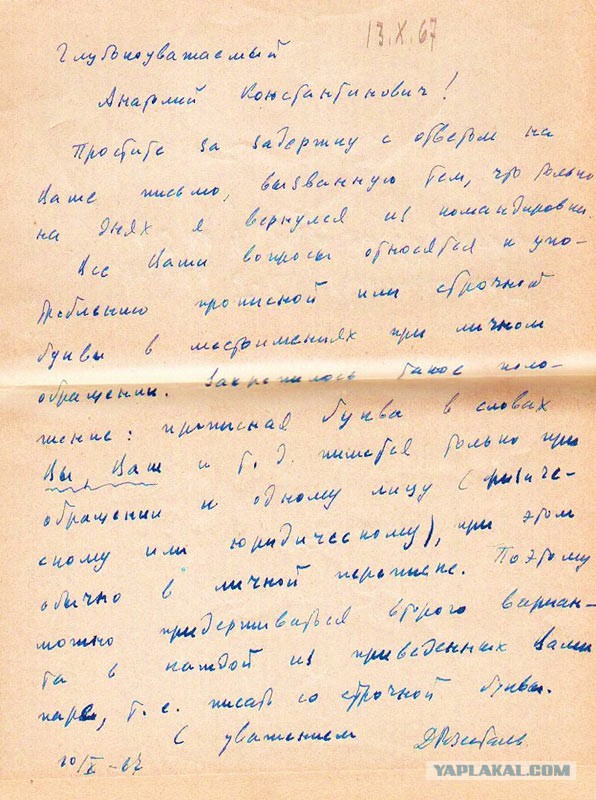 13.X.67
Глубокоуважаемый
Анатолий Константинович!
Простите за задержку с ответом на
Ваше письмо, вызванную тем, что только
на днях я вернулся из командировки.
Все Ваши вопросы относятся к упо-
треблению прописной или строчной
буквы в местоимениях при личном
обращении. Закрепилось такое поло-
жение: прописная буква в словах
Вы, Ваш и т. д. пишется только при
обращении к одному лицу (физиче-
скому или юридическому), при этом
обычно в личной переписке. Поэтому
можно придерживаться второго вариан-
та в каждой из приведенных Вами
пар, т. е. писать со строчной буквы.
С уважением ДРозенталь
10/X-67
YAPLAKAL.COM